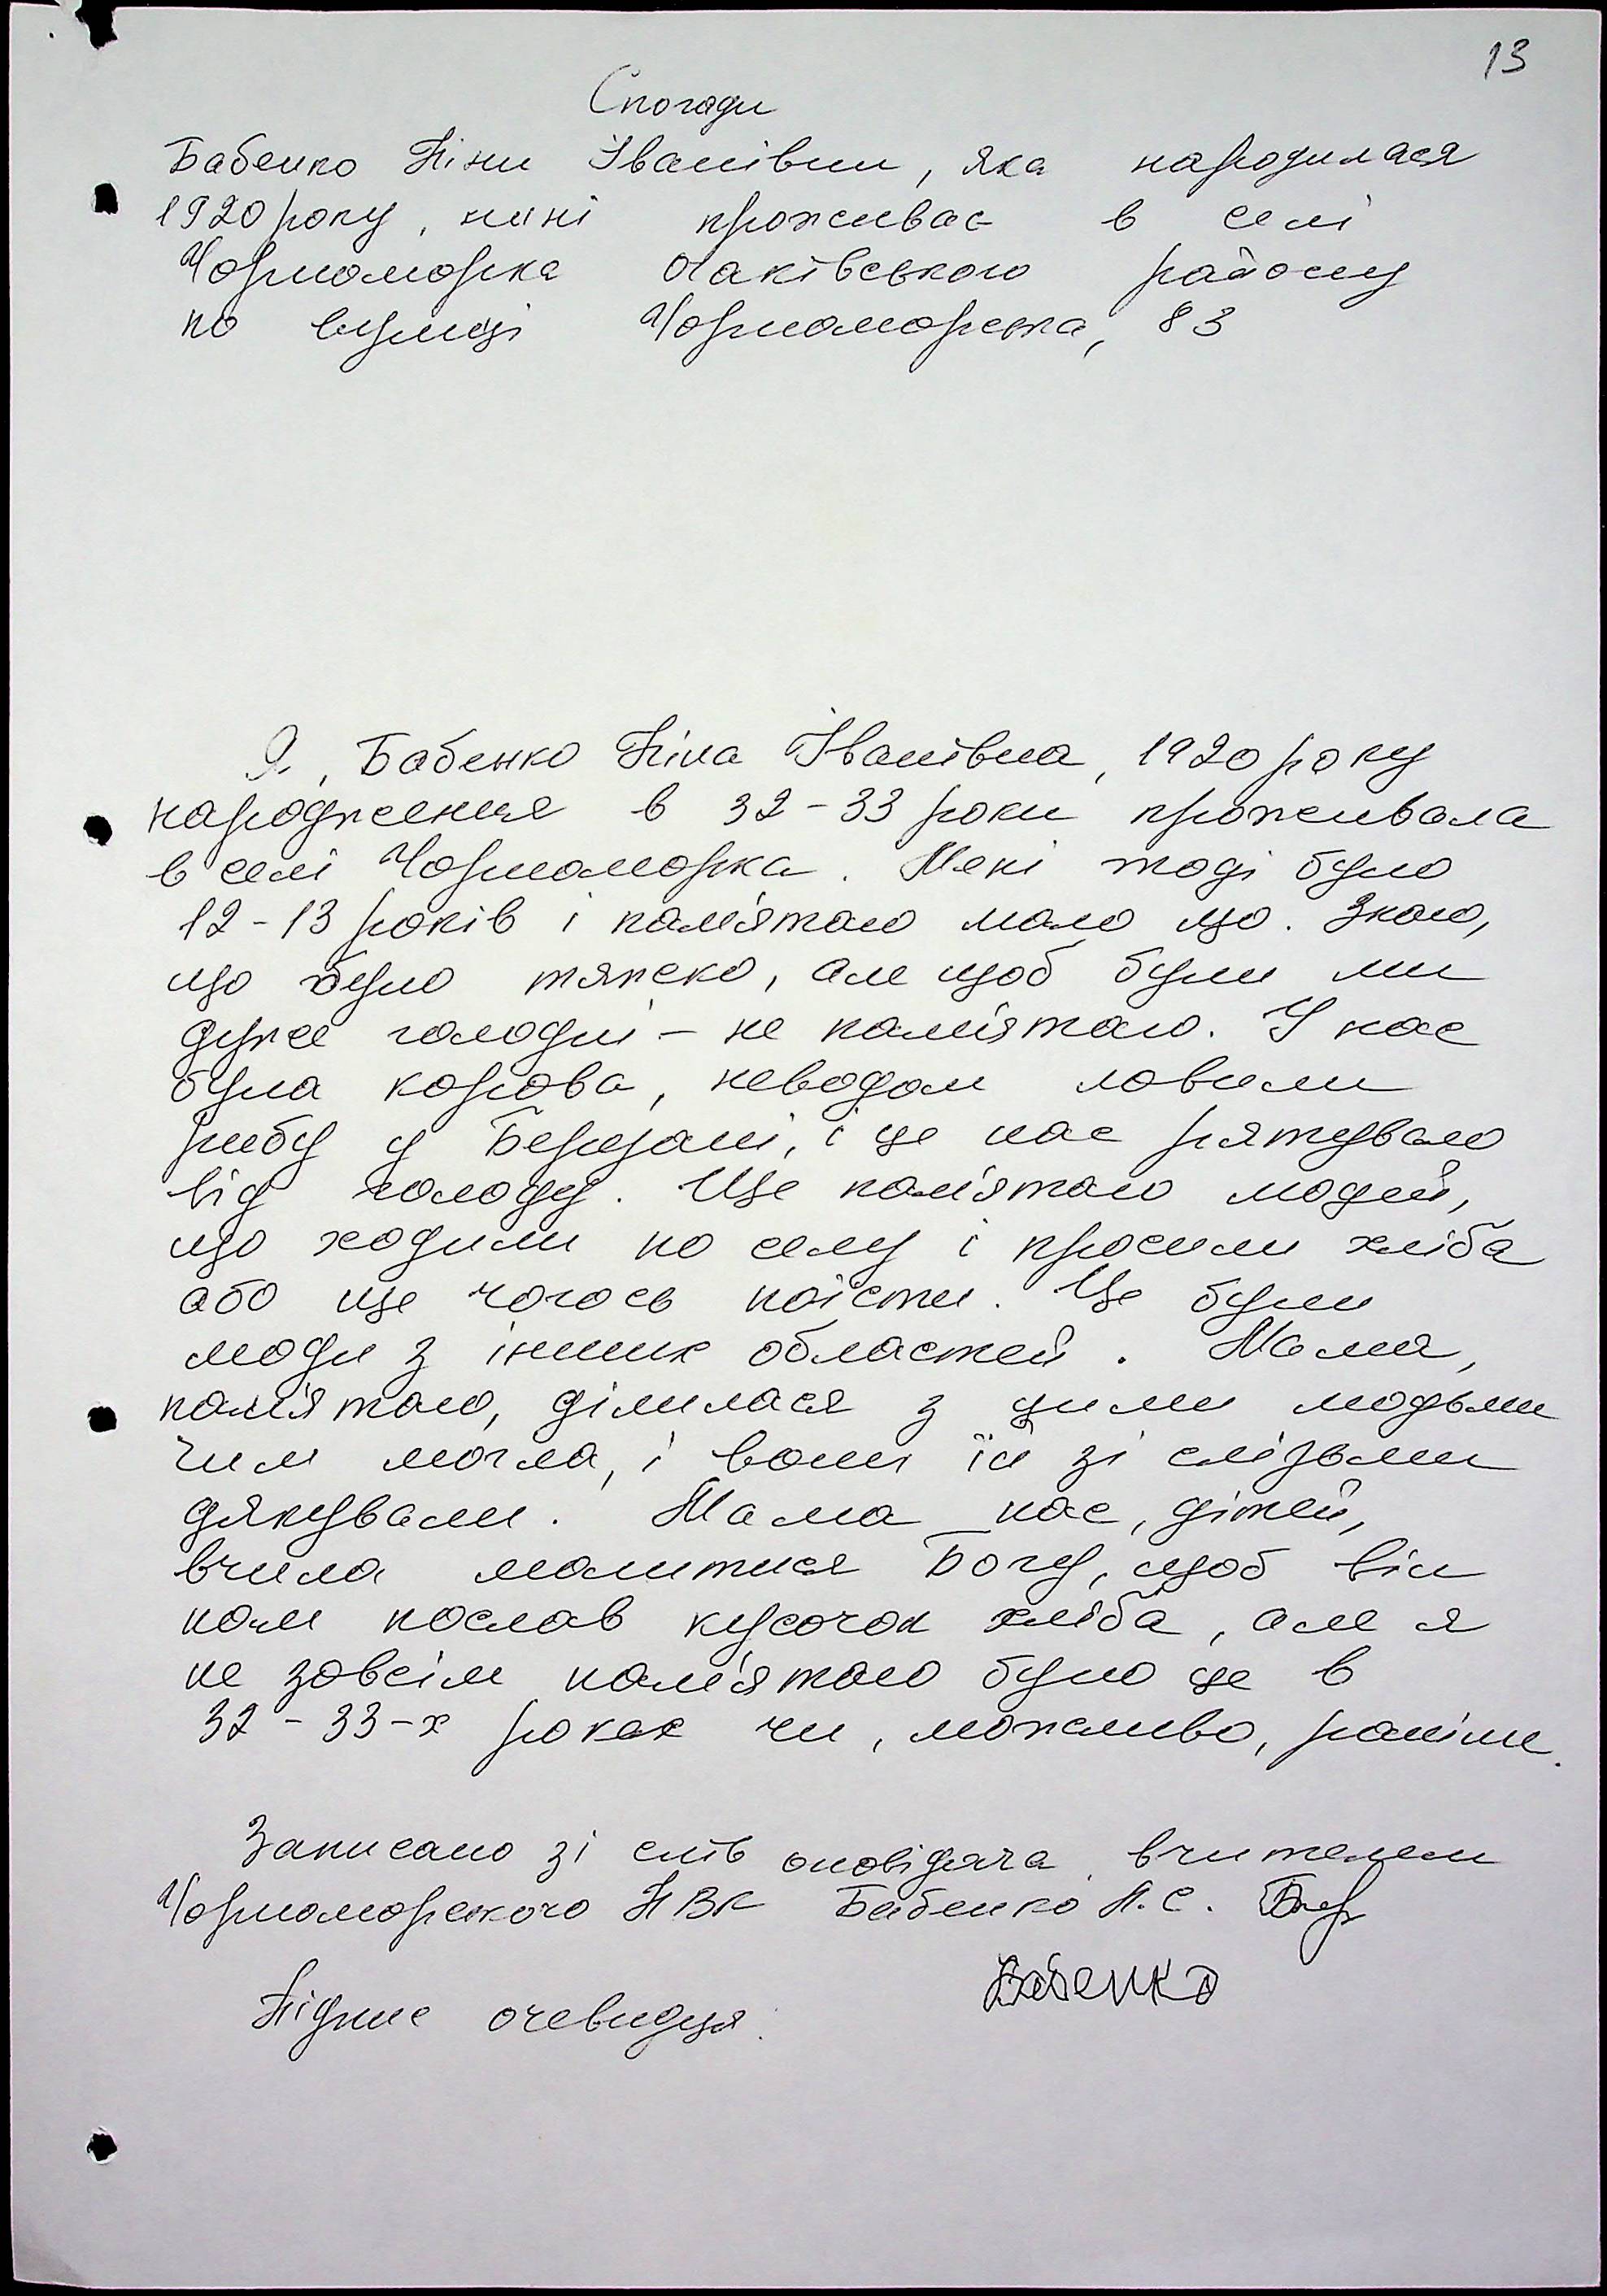 13
Спогади
Бабенко Ніни Іванівни, яка народилася
1920 року, нині проживає в селі
Чорноморка Очаківського району
по вулиці Чорноморська, 83
Я, Бабенко Ніна Іванівна, 1920 року
народження в 32-33 роки проживала
в селі Чорноморка. Мені тоді було
12-13 років і пам'ятаю мало що. Знаю,
що було тяжко, але щоб були ми
дуже голодні - не пам'ятаю. У нас
була корова, неводом ловили
рибу у Березані, і це нас рятувало
від голоду. Ще пам'ятаю людей,
що ходили по селу і просили хліба
або ще чогось поїсти. Це були
люди з інших областей. Мама,
пам'ятаю, ділилася з цими людьми
чим могла, і вони їй зі слізьми
дякували. Мама нас, дітей,
вчила молитися Богу, щоб він
нам послав кусочок хліба, але я
не зовсім пам'ятаю було це в
32-33-х роках чи, можливо, раніше.
Записано зі слів оповідача вчителем
Чорноморського НВК Бабенко Л.С.
Бабенко
Підпис очевидця.